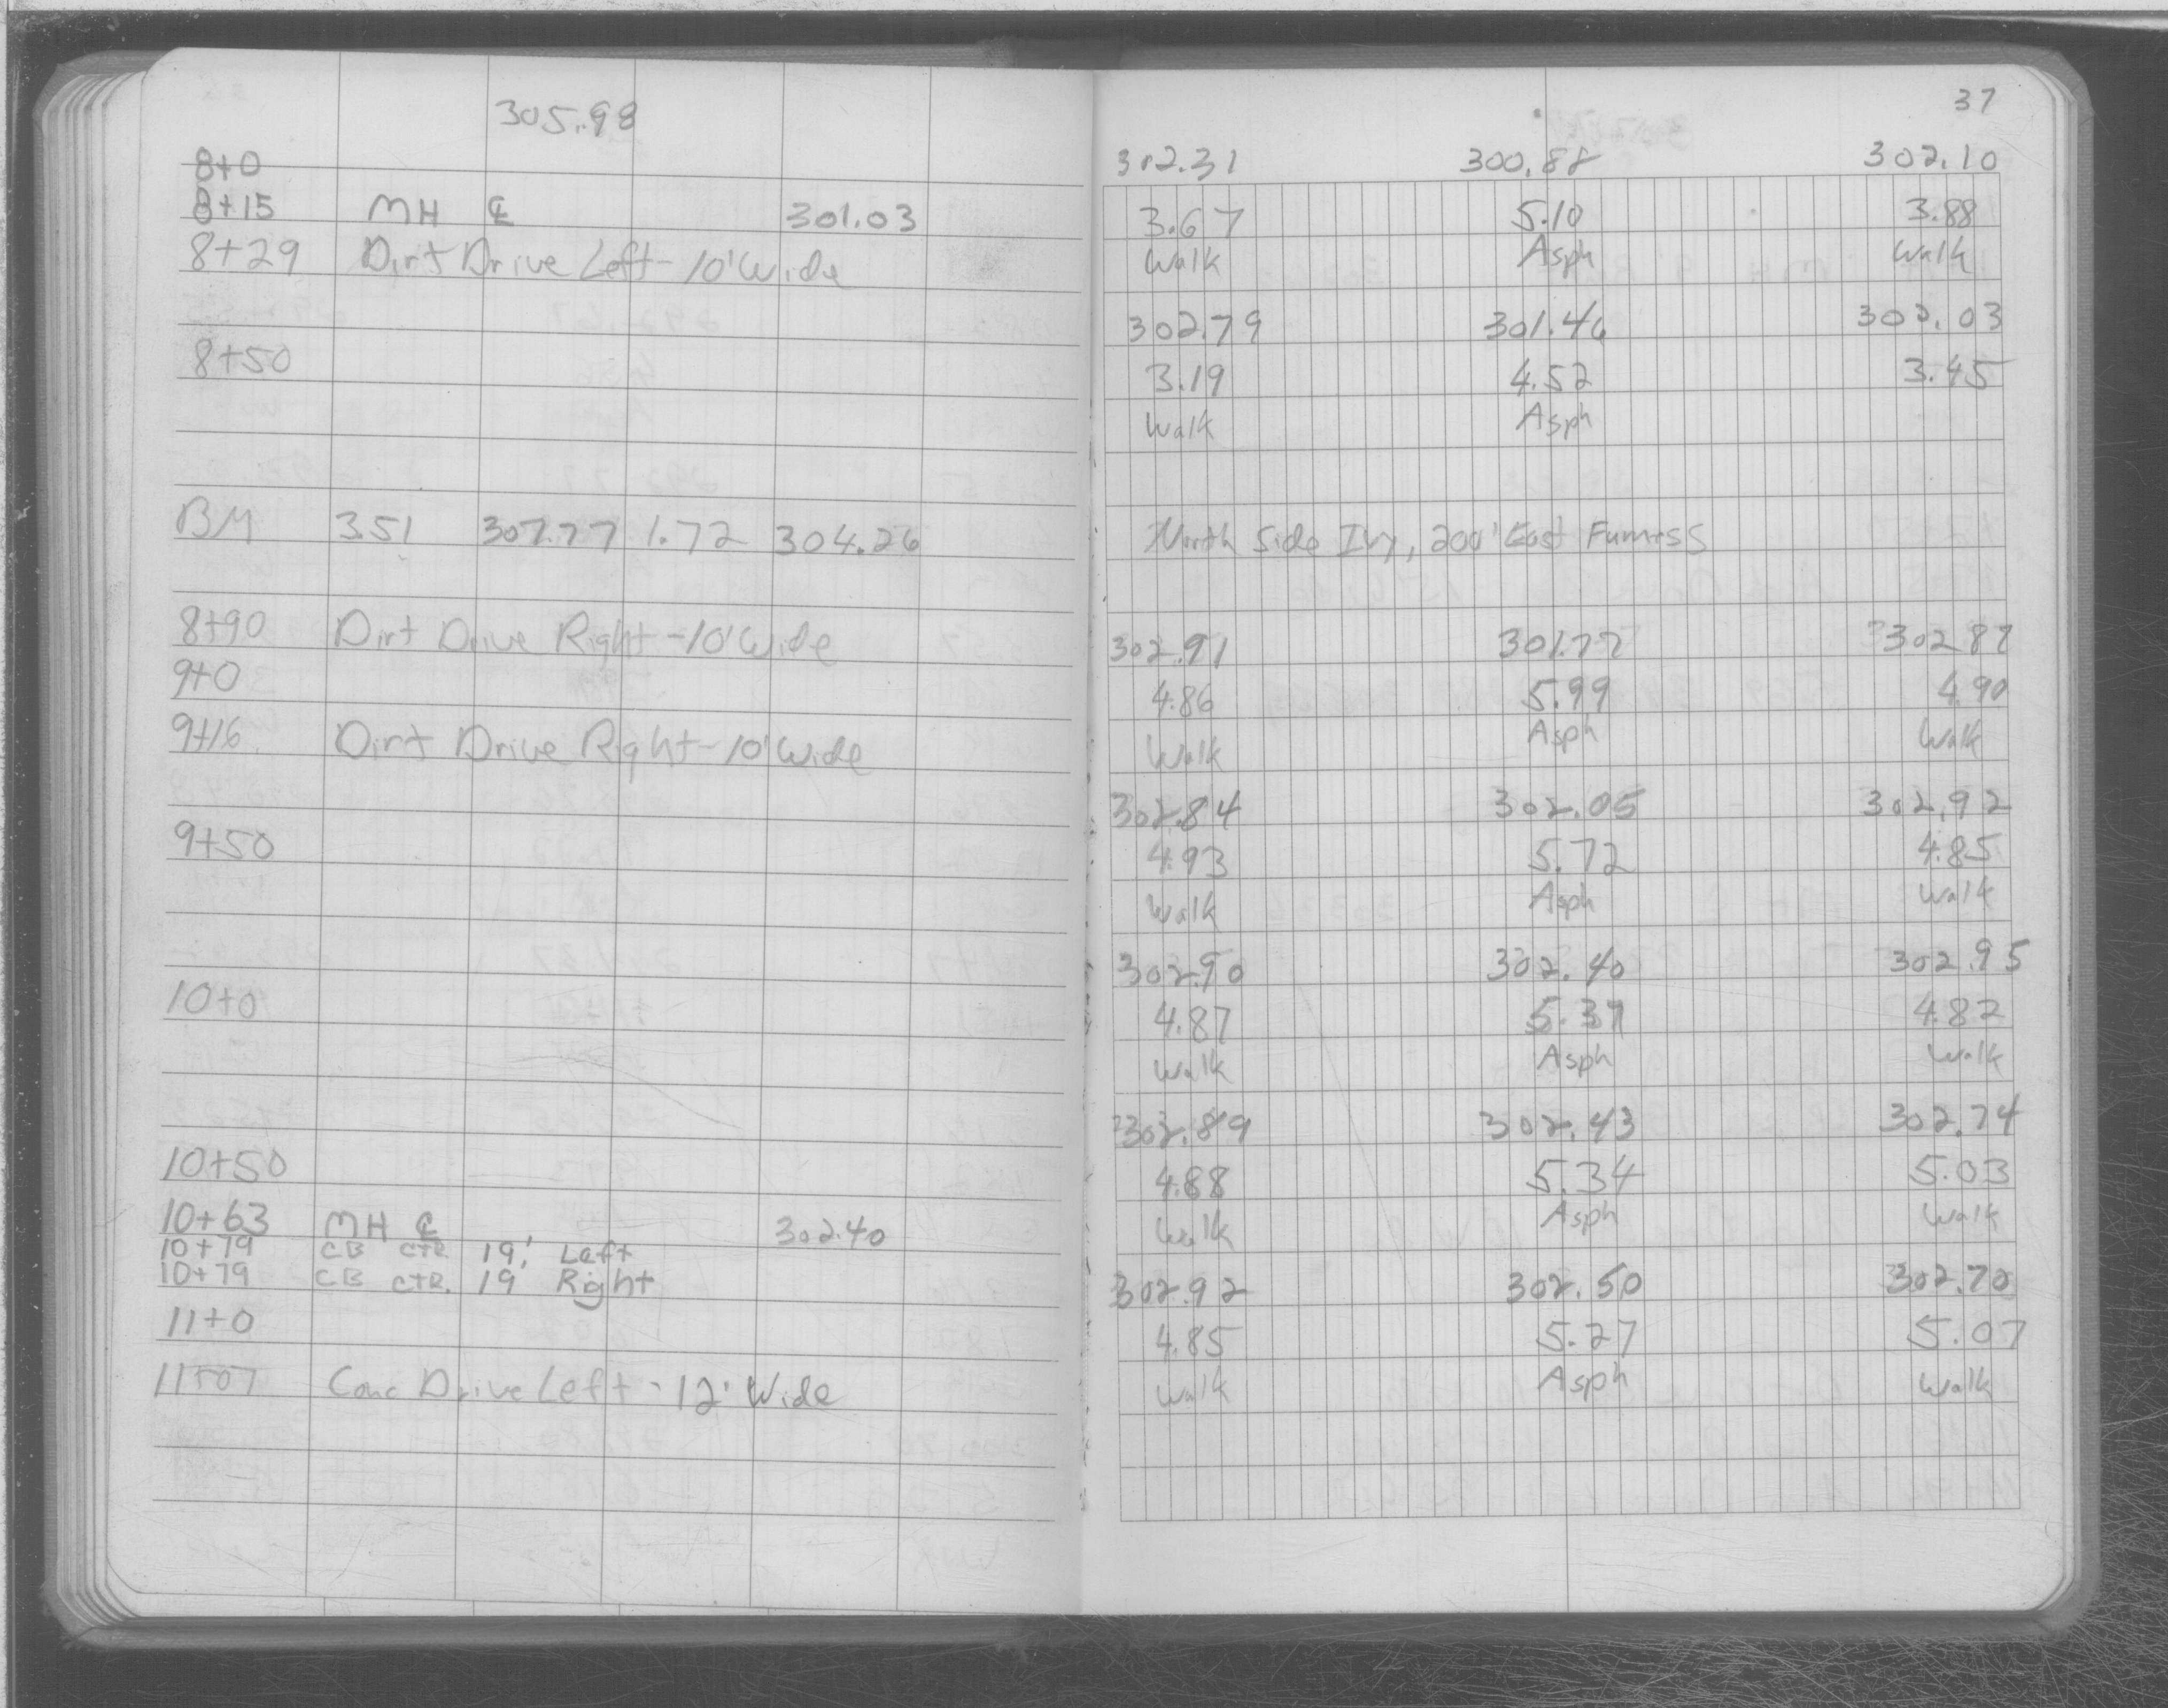 305.98
8+0
8+15 MH ℄ 301.03
8+29 Dirt Drive Left - 10' Wide
8+50
BM 3.51 307.77 1.72 304.26
8+90 Dirt Drive Right - 10' Wide
9+0
9+16 Dirt Drive Right - 10' Wide
9+50
10+0
10+50
10+63 MH ℄ 302.40
10+79 CB CTR. 19' Left
10+79 CB CTR. 19 Right
11+0
11+07 Conc Drive Left - 12' Wide
37
302.31 300.88 302.10
3.67 5.10 3.88
Walk Asph Walk
302.79 301.46 302.03
3.19 4.52 3.45
Walk Asph
North Side Ivy, 200' East Furness
302.91 301.77 302.87
4.86 5.99 4.90
Walk Asph Walk
302.84 302.05 302.92
4.93 5.72 4.85
Walk Asph Walk
302.90 302.40 302.95
4.87 5.39 4.82
Walk Asph Walk
302.89 302.43 302.74
4.88 5.34 5.03
Walk Asph Walk
302.92 302.50 302.70
4.85 5.27 5.07
Walk Asph Walk